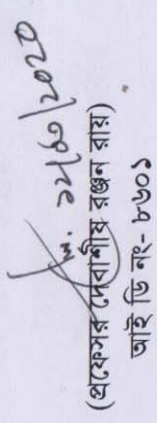 ১২/৬/২০২০
(প্রফেসর দেবাশীষ রঞ্জন রায়)
আই ডি নং- ৮৬০১